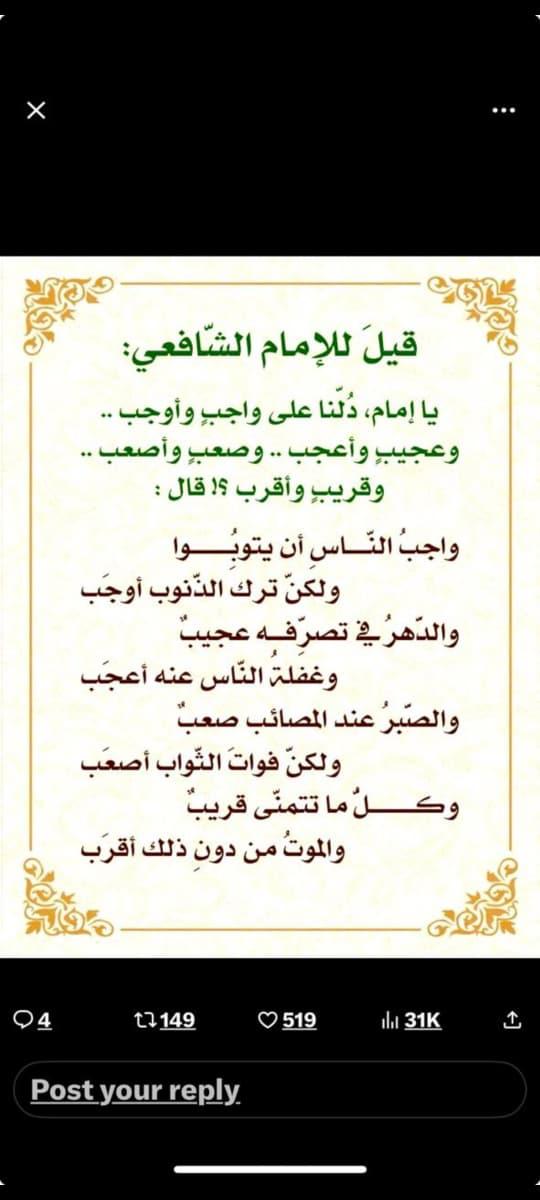 قيلَ للإمام الشّافعي:
يا إمام، دُلّنا على واجبٍ وأوجب ..
وعجيبٍ وأعجب .. وصعبٍ وأصعب ..
وقريبٍ وأقرب ؟! قال :
واجبُ النّـــاسِ أن يتوبُـــــوا
ولكنّ ترك الذّنوب أوجَب
والدّهرُ في تصرّفـه عجيبٌ
وغفلةُ النّاس عنه أعجَب
والصّبرُ عند المصائب صعبٌ
ولكنّ فواتَ الثّواب أصعَب
وكـــــلُّ ما تتمنّى قريبٌ
والموتُ من دونِ ذلك أقرَب
4 149 519 31K
Post your reply